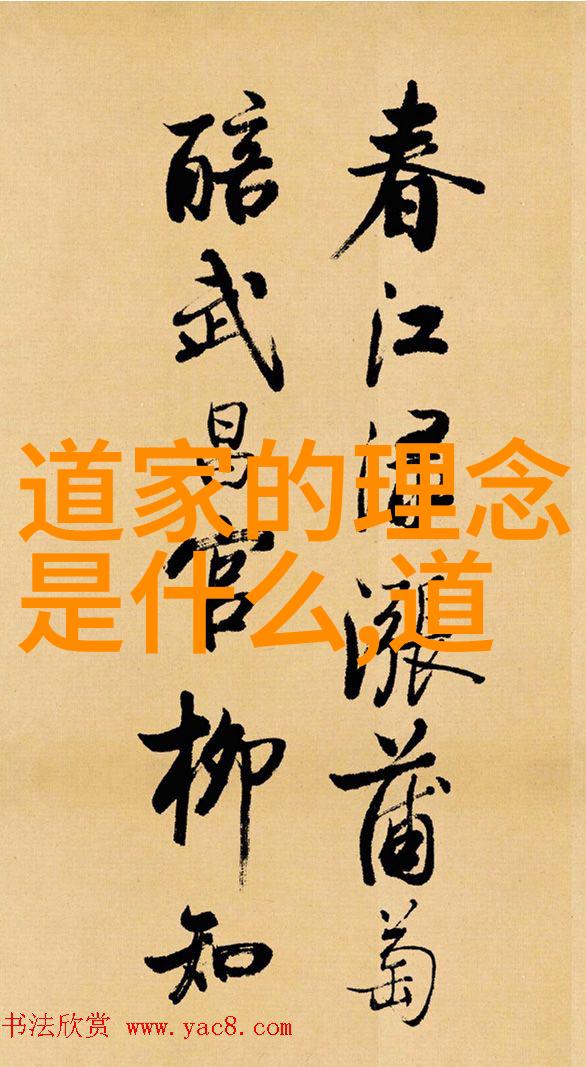 春江漲蒲萄
醅武昌官柳知
道家的理念
是什么,道
书法欣赏 www.yac8.com